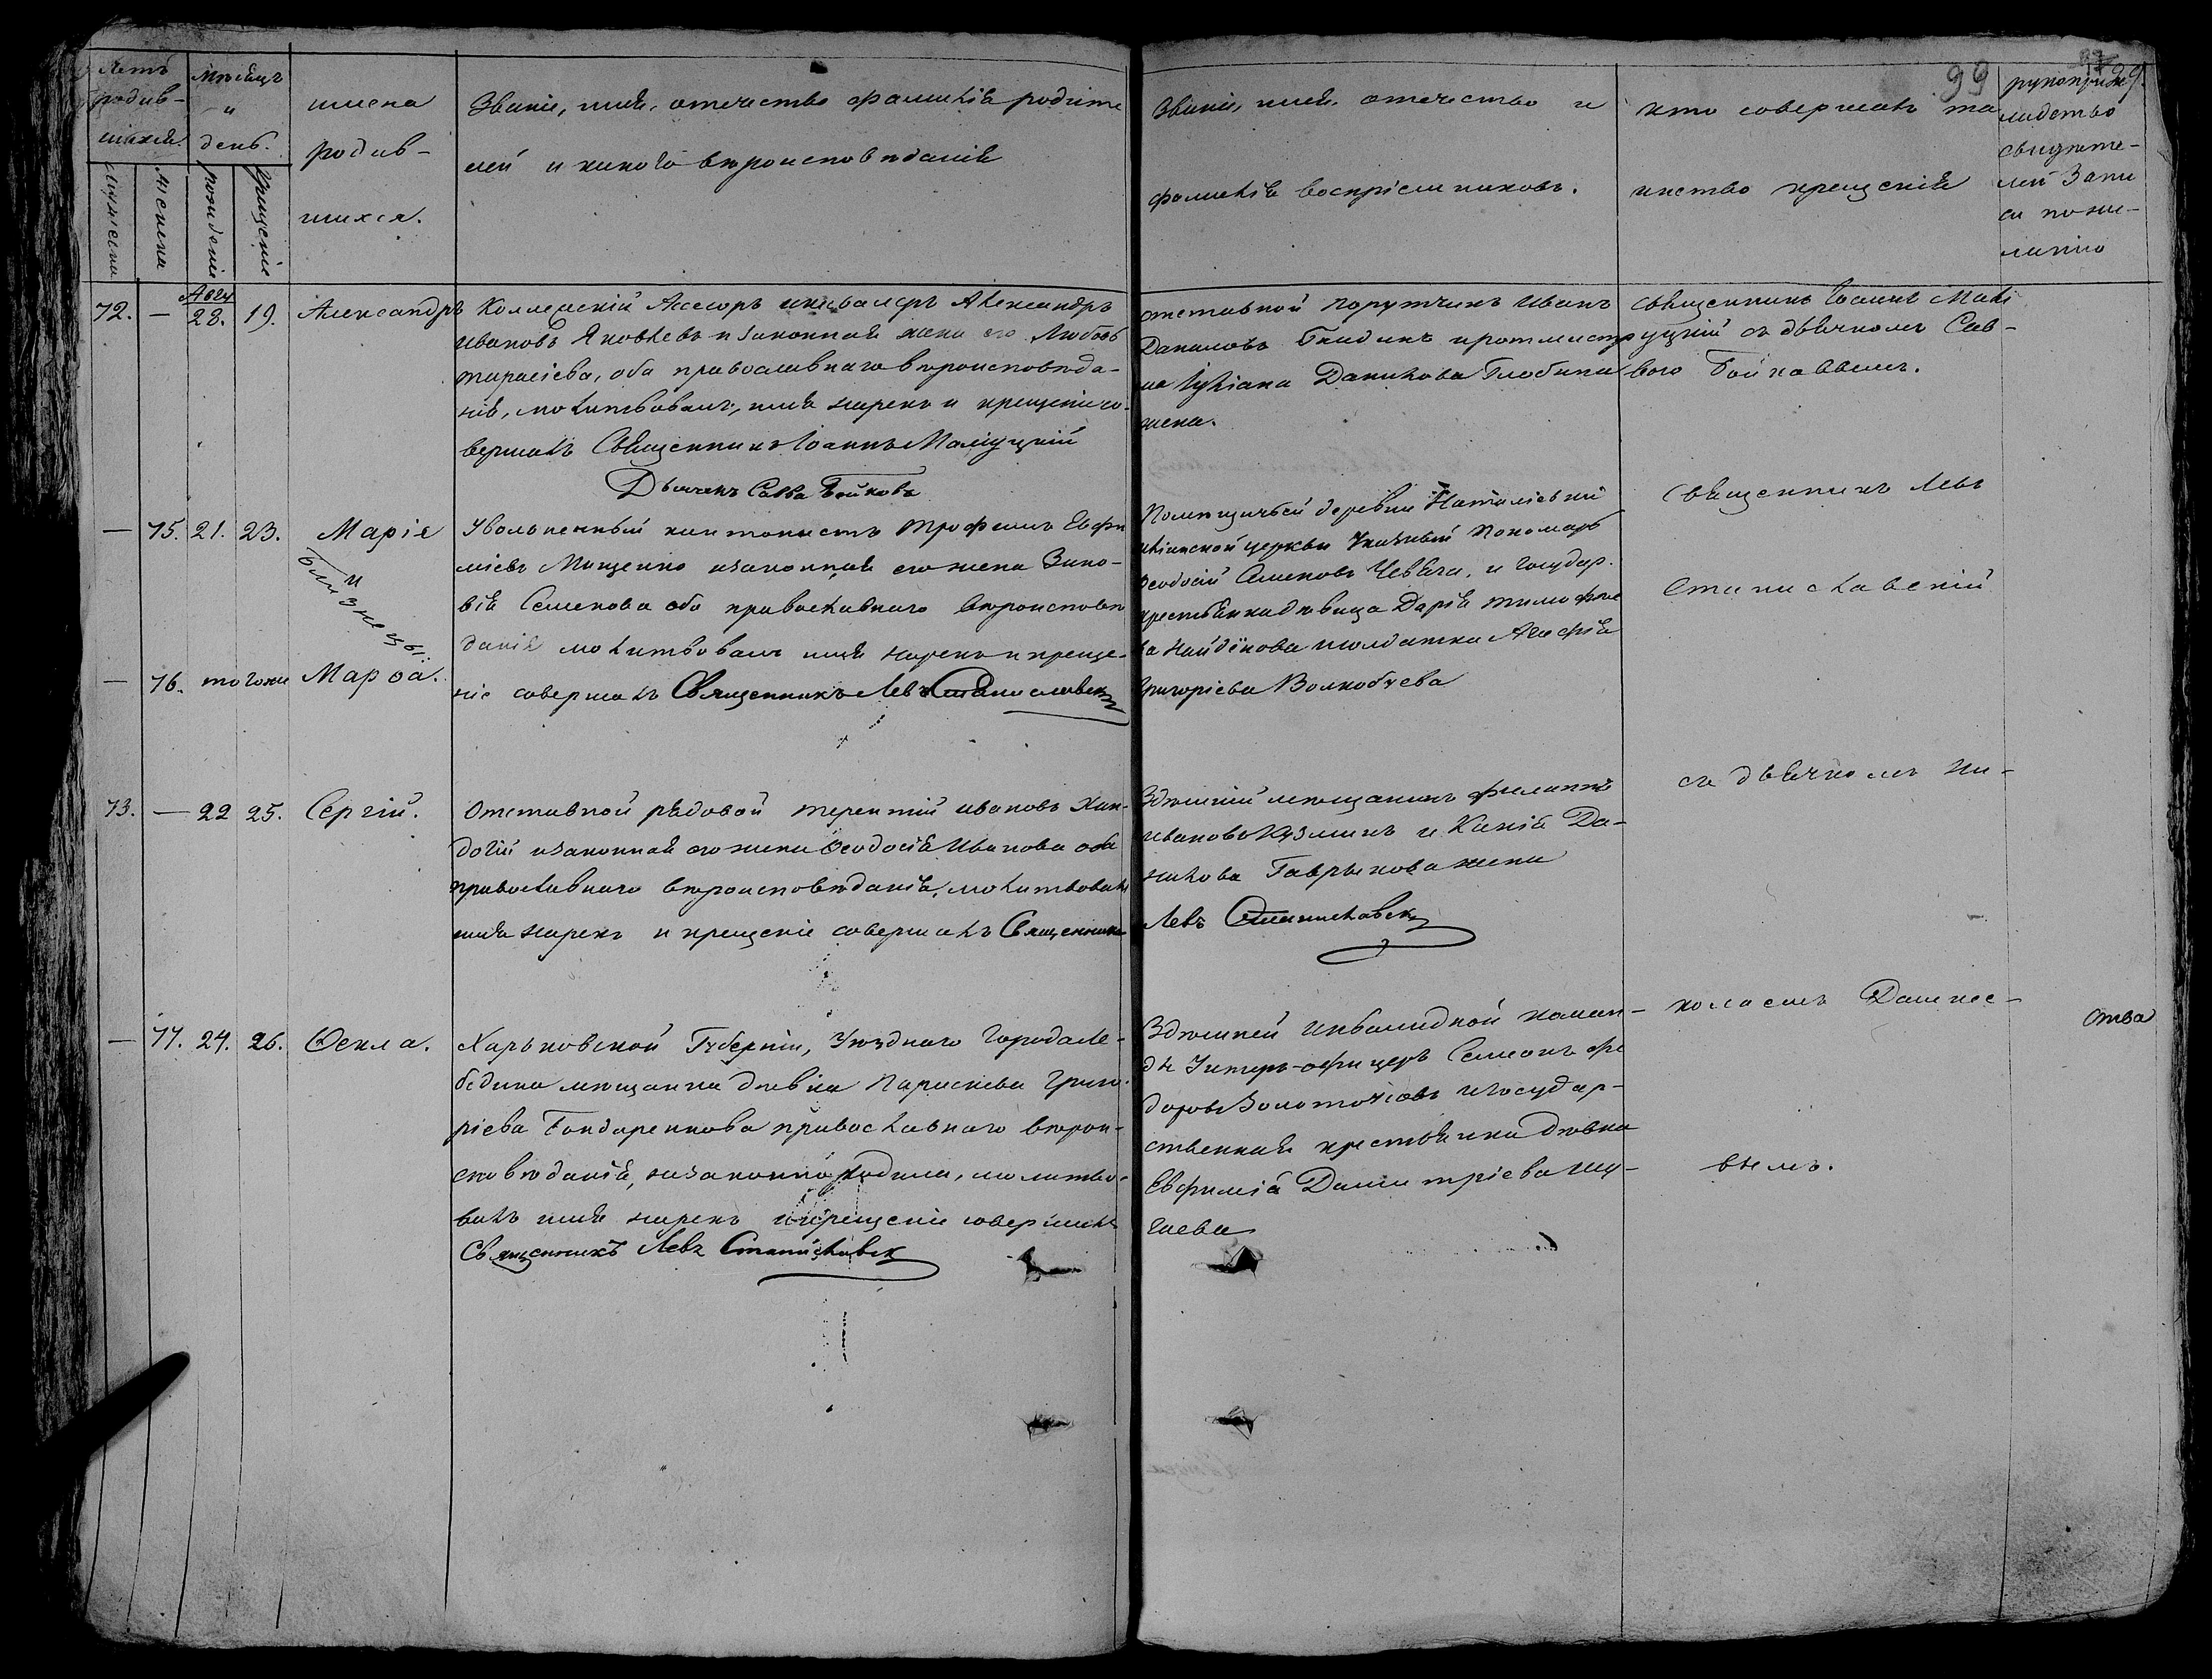 99
Летъ родив-
шихся.
Мѣсяцъ
и
день.
имена
родив-
шихся.
Званіе, имя, отечество фамилія родите
лей и какого вѣроисповѣданія
Званіе, имя, отечество и
фамилія воспріемниковъ.
кто совершалъ та
инство крещенія
рукоприкла
лидство
свидѣте-
лей Запи
си по же-
ланію
мужеска
женска
рожденіе
крещеніе
72. — Авгу 28. 19. Александръ
Коллежскій Ассесоръ икавалеръ Александръ
Ивановъ Яковлевъ и законная жена его Любовь
тарасіева, оба православнаго вѣроисповѣда-
нія, молитвовалъ, имя нарекъ и крещеніе со-
вершалъ Священникъ Іоаннъ Маліуцкій
Дьячекъ Савва Бойковъ
отставной порутчикъ Иванъ
Даниловъ иротмистр
на Іуліана Данилова Глобина
жена.
Священникъ Іоаннъ Малі
уцкій съ дьячкомъ Сав-
вою Бойковымъ.
— 75. 21. 23. Марія
и
близнецы.
— 76. тогоже Марѳа.
Уволненный кантонистъ Трофимъ Евфи
міевъ Мищенко изаконная его жена Зино-
вія Семенова оба православнаго вѣроисповѣ
данія молитвовалъ имя нарекъ и креще-
ніе совершалъ Священникъ Левъ Станиславск
Помѣщичьей деревни Наталіевки
церкви Указный Пономарь
Ѳеодосій Семеновъ и государ.
крестьянка дѣвица Дарія тимофѣе
ва Найдёнова исолдатка Агафія
Григоріева Волкобуева
Священникъ Левъ
Станиславскій
73. — 22 25. Сергій.
Отставной рядовой терентій ивановъ Хан-
догій изаконная его жена Ѳеодосія Иванова оба
православнаго вѣроисповѣданія, молитвовалъ
имя нарекъ и крещеніе совершалъ Священникъ
Здѣшній мещанинъ филиппъ
ивановъ Кузминъ и Да-
нилова Гаврыкова жена
Левъ Станиславск
съ дьячкомъ Ни-
— 77. 24. 26. Ѳекла.
Харьковской Губерніи, Уѣзднаго Города Ле-
бедина мещанка дѣвка Параскева Григо-
ріева Бондаренкова православнаго вѣрои-
сповѣданія, незаконно родила, молитво-
валъ имя нарекъ икрещеніе совершалъ
Священникъ Левъ Станиславск
Здѣшней Инвалидной коман-
ды Унтеръ-офицеръ Семенъ Фе
доровъ Золоторіовъ игосудар-
ственная крестьянка дѣвка
Евфимія Димитріева
гаева
колаемъ Дашкее-
вымъ.
ства